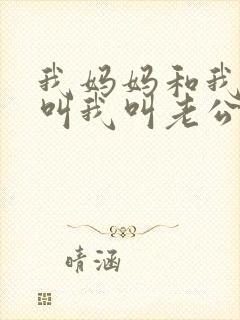 我妈妈和我
叫我叫老公
晴涵